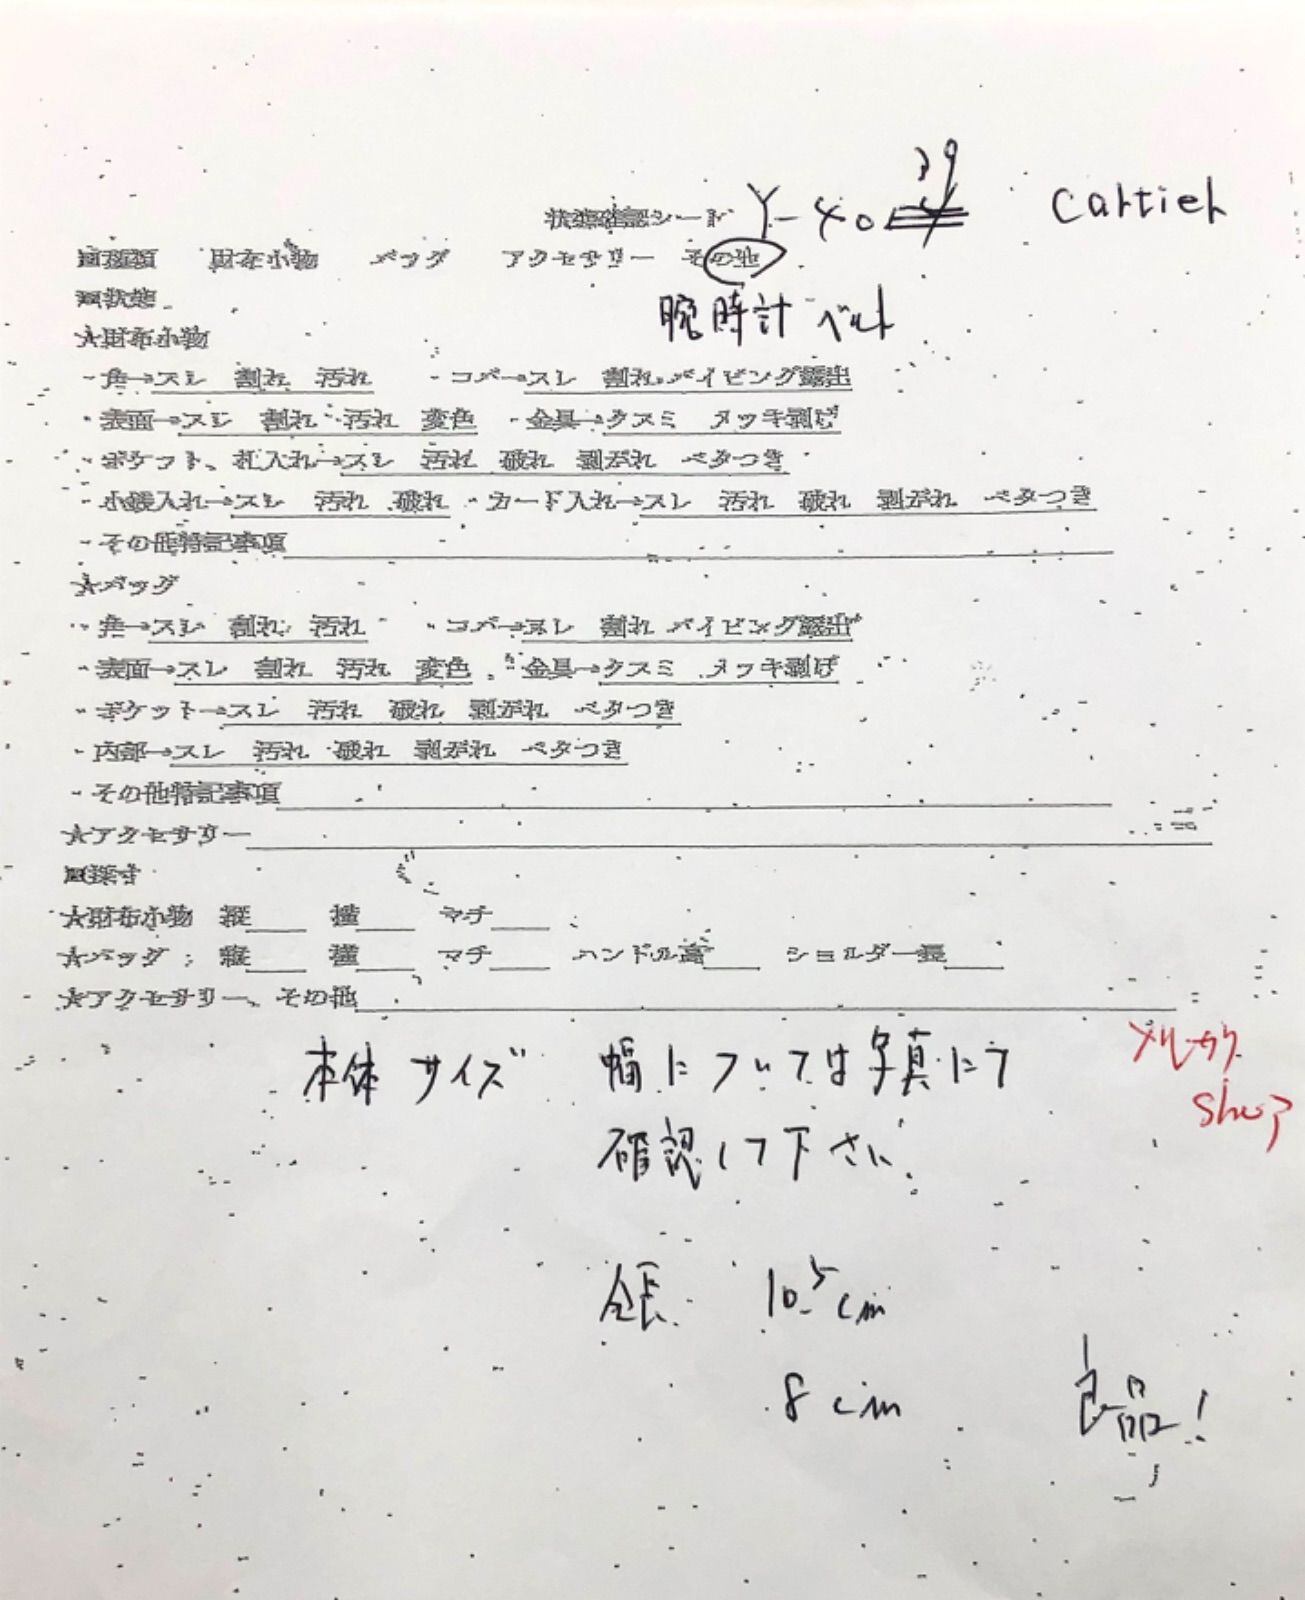 状態確認シート Y-40 39 Cartier
■種類 財布小物 バッグ アクセサリー その他
■状態
腕時計 ベルト
★財布小物
・角→スレ 割れ 汚れ ・コバ→スレ 割れ パイピング露出
・表面→スレ 割れ 汚れ 変色 ・金具→クスミ メッキ剥げ
・ポケット、札入れ→スレ 汚れ 破れ 剥がれ ベタつき
・小銭入れ→スレ 汚れ 破れ ・カード入れ→スレ 汚れ 破れ 剥がれ ベタつき
・その他特記事項
★バッグ
・角→スレ 割れ 汚れ ・コバ→スレ 割れ パイピング露出
・表面→スレ 割れ 汚れ 変色 ・金具→クスミ メッキ剥げ
・ポケット→スレ 汚れ 破れ 剥がれ ベタつき
・内部→スレ 汚れ 破れ 剥がれ ベタつき
・その他特記事項
★アクセサリー
■採寸
★財布小物 縦 横 マチ
★バッグ : 縦 横 マチ ハンドル高 ショルダー長
★アクセサリー、その他
メルカリ
shop
本体サイズ 幅については写真にて
確認して下さい
全長 10.5cm
8cm
良品!